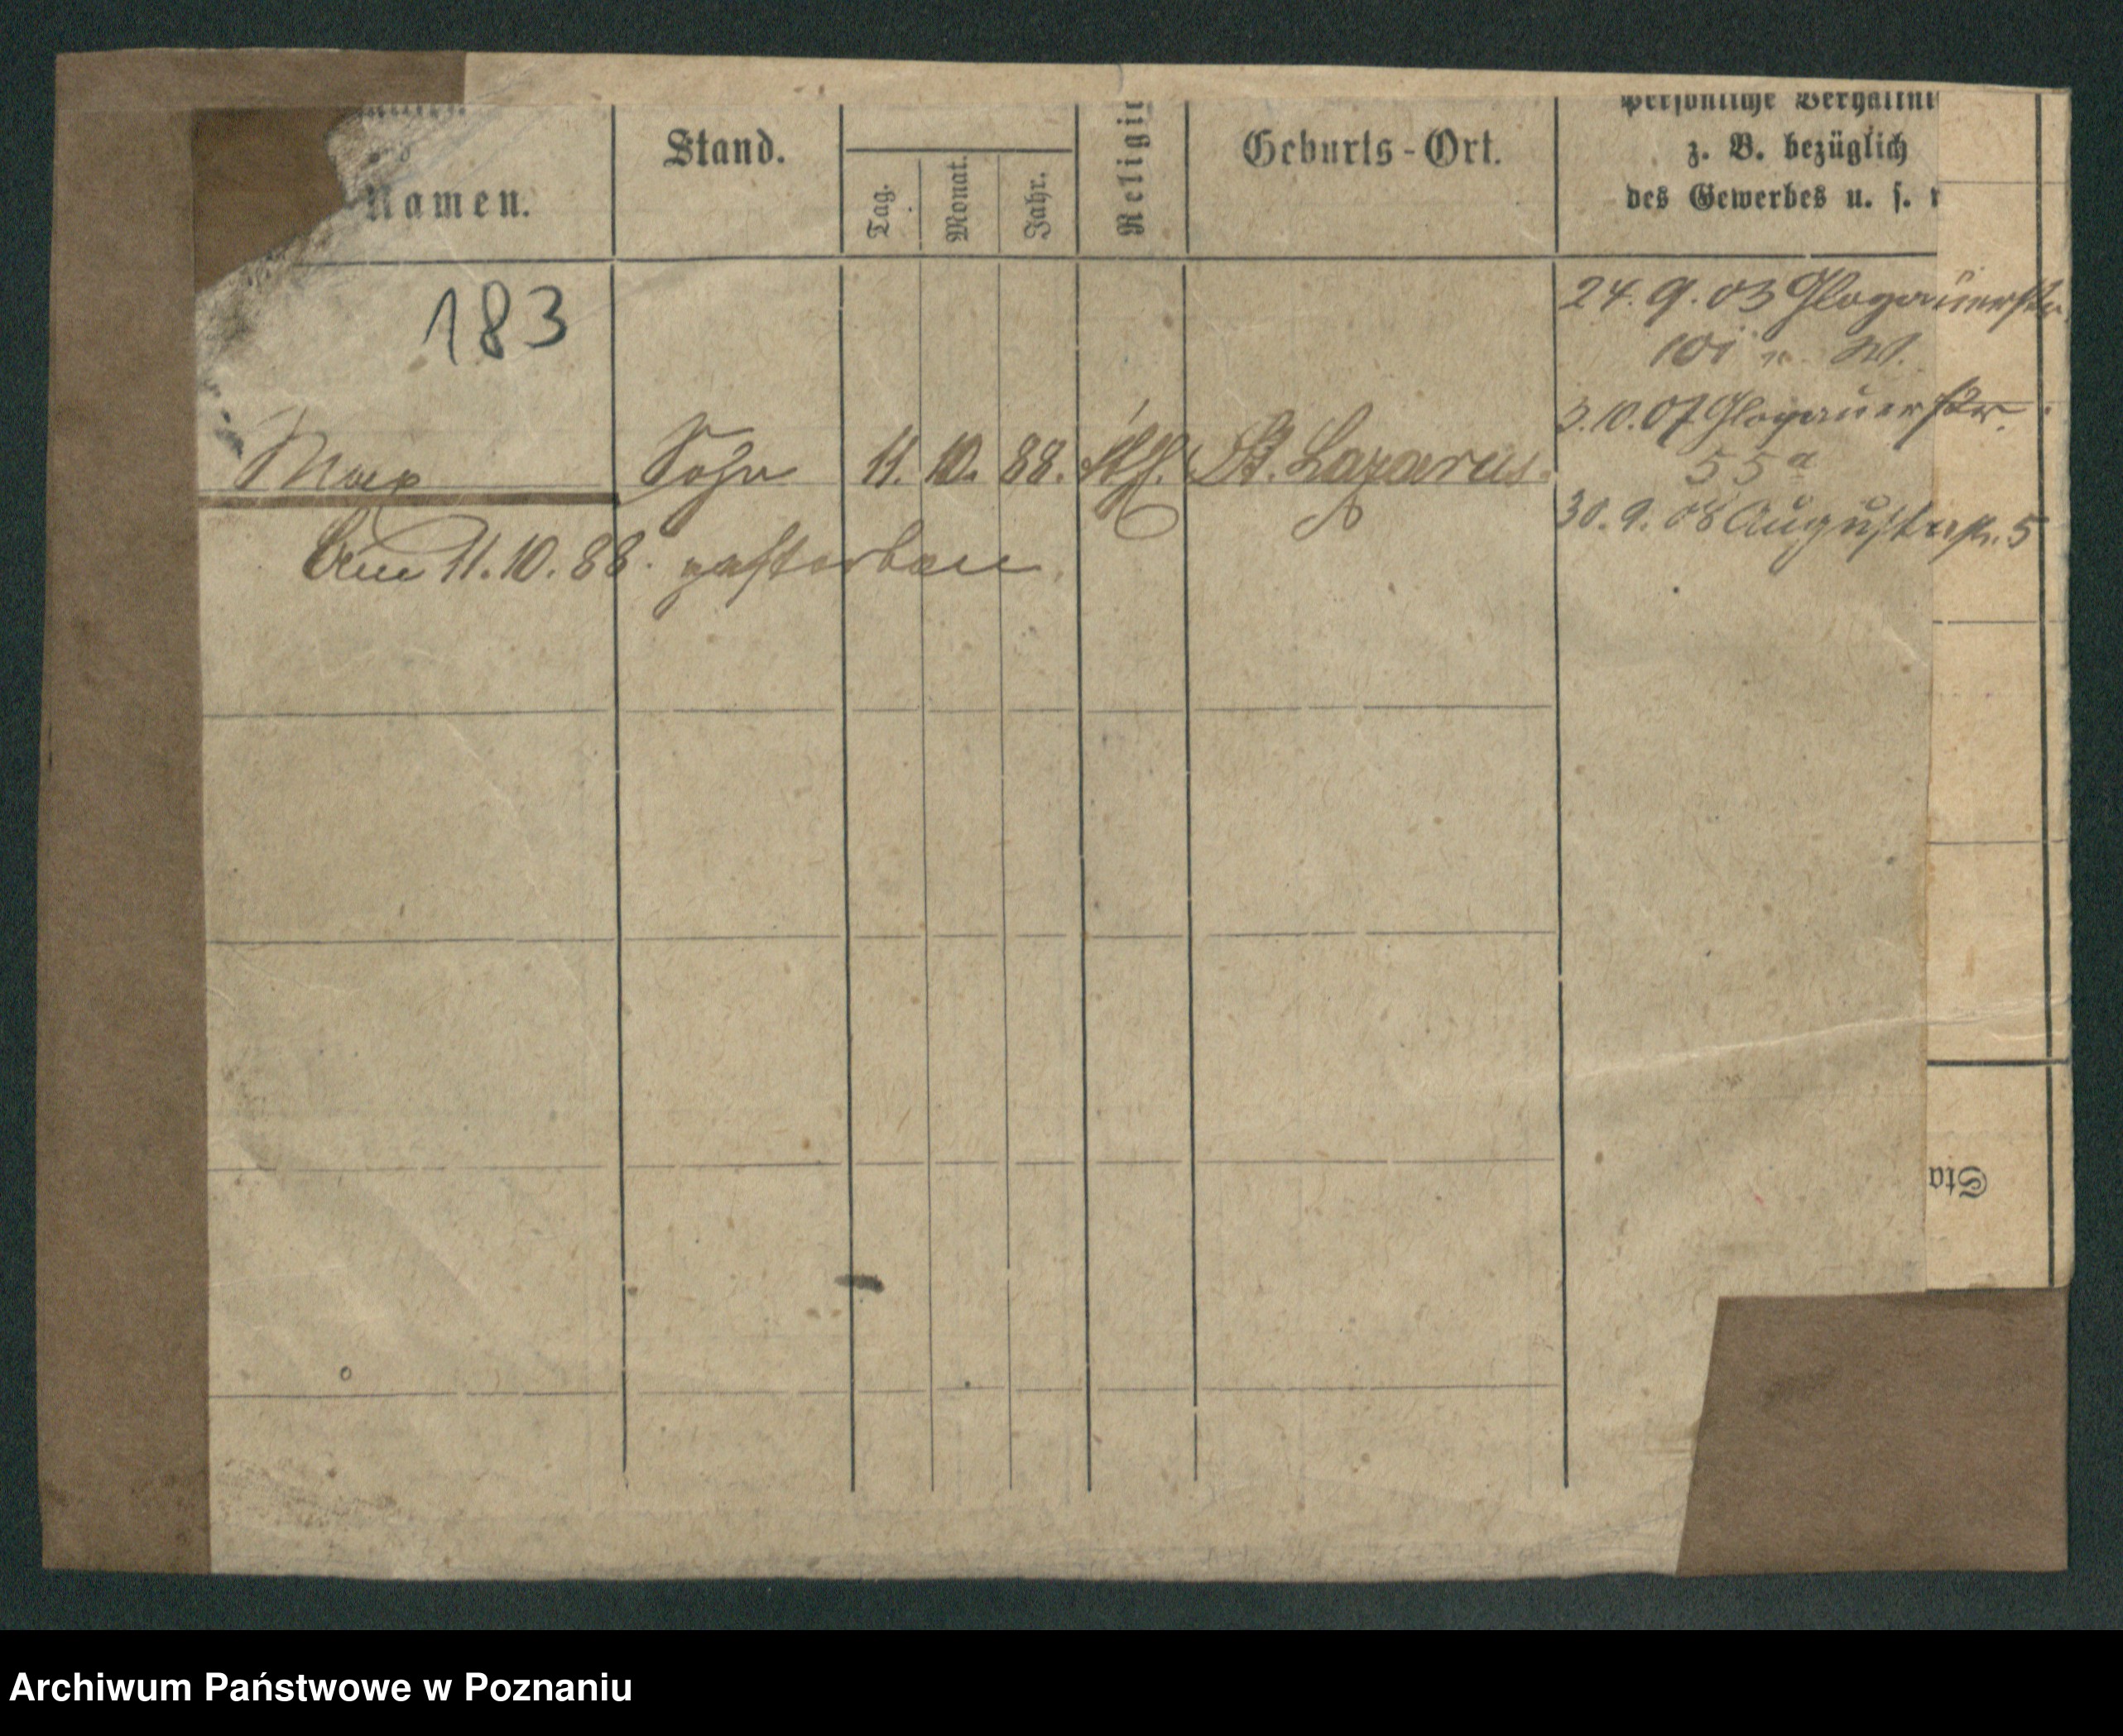 und
Namen.
Stand.
Tag.
Monat.
Jahr.
Religio
Geburts-Ort.
Persönliche Verhältni
z. B. bezüglich
des Gewerbes u. s.
183
24. 9. 03 Glogauerstr.
101 n. W.
Max Sohn 11. 10. 88. St. Lazarus.
3. 10. 07 Glogauerstr.
55a
Am 11. 10. 88. gestorben.
30. 9. 08 Augustastr. 5
Sta
Archiwum Państwowe w Poznaniu